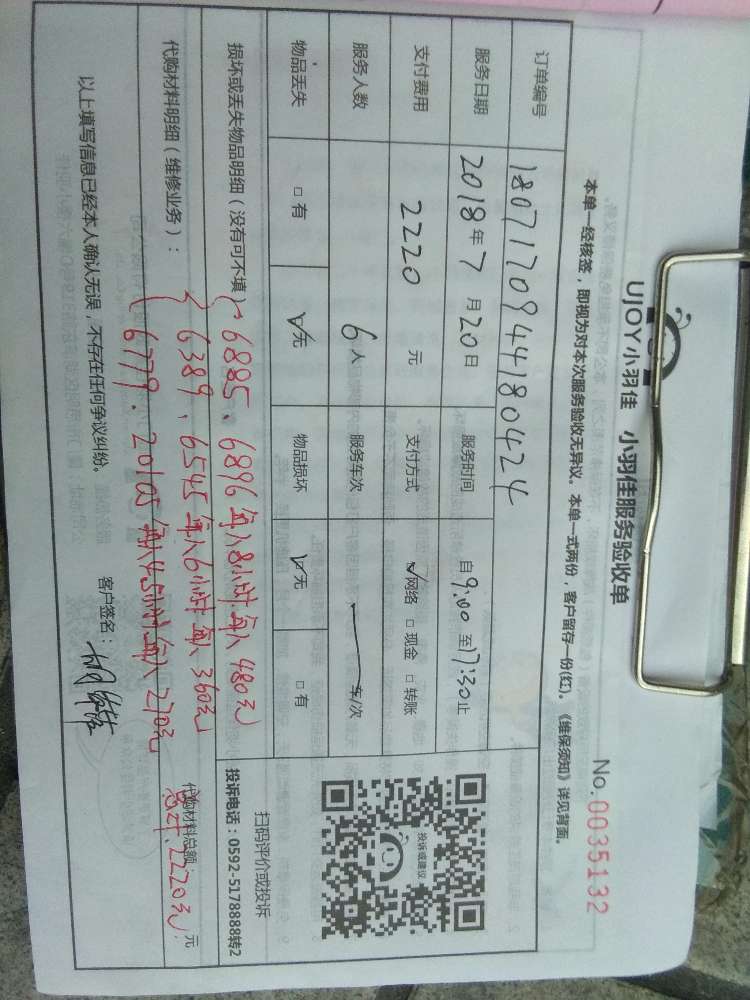 UJOY小羽佳 小羽佳服务验收单
No.0035132
本单一经核签，即视为对本次服务验收无异议。本单一式两份，客户留存一份(红)。《维保须知》详见背面。
订单编号 18071709444180424
服务日期 2018年7月20日 服务时间 自9:00至17:30止
支付费用 2220 元 支付方式 ☑网络 □现金 □转账
服务人数 6人 服务车次 — 车/次
物品丢失 □有 ☑无 物品损坏 ☑无 □有
投诉或建议
扫码评价或投诉
投诉电话：0592-5178888转2
损坏或丢失物品明细（没有可不填）
6885、6896每人8小时.每人480元
代购材料明细（维修业务）：
6389、6545每人6小时每人360元
6779.20105每人4.5小时每人270元
代购材料总额： 元
总计.2220元
以上填写信息已经本人确认无误，不存在任何争议纠纷。 客户签名：